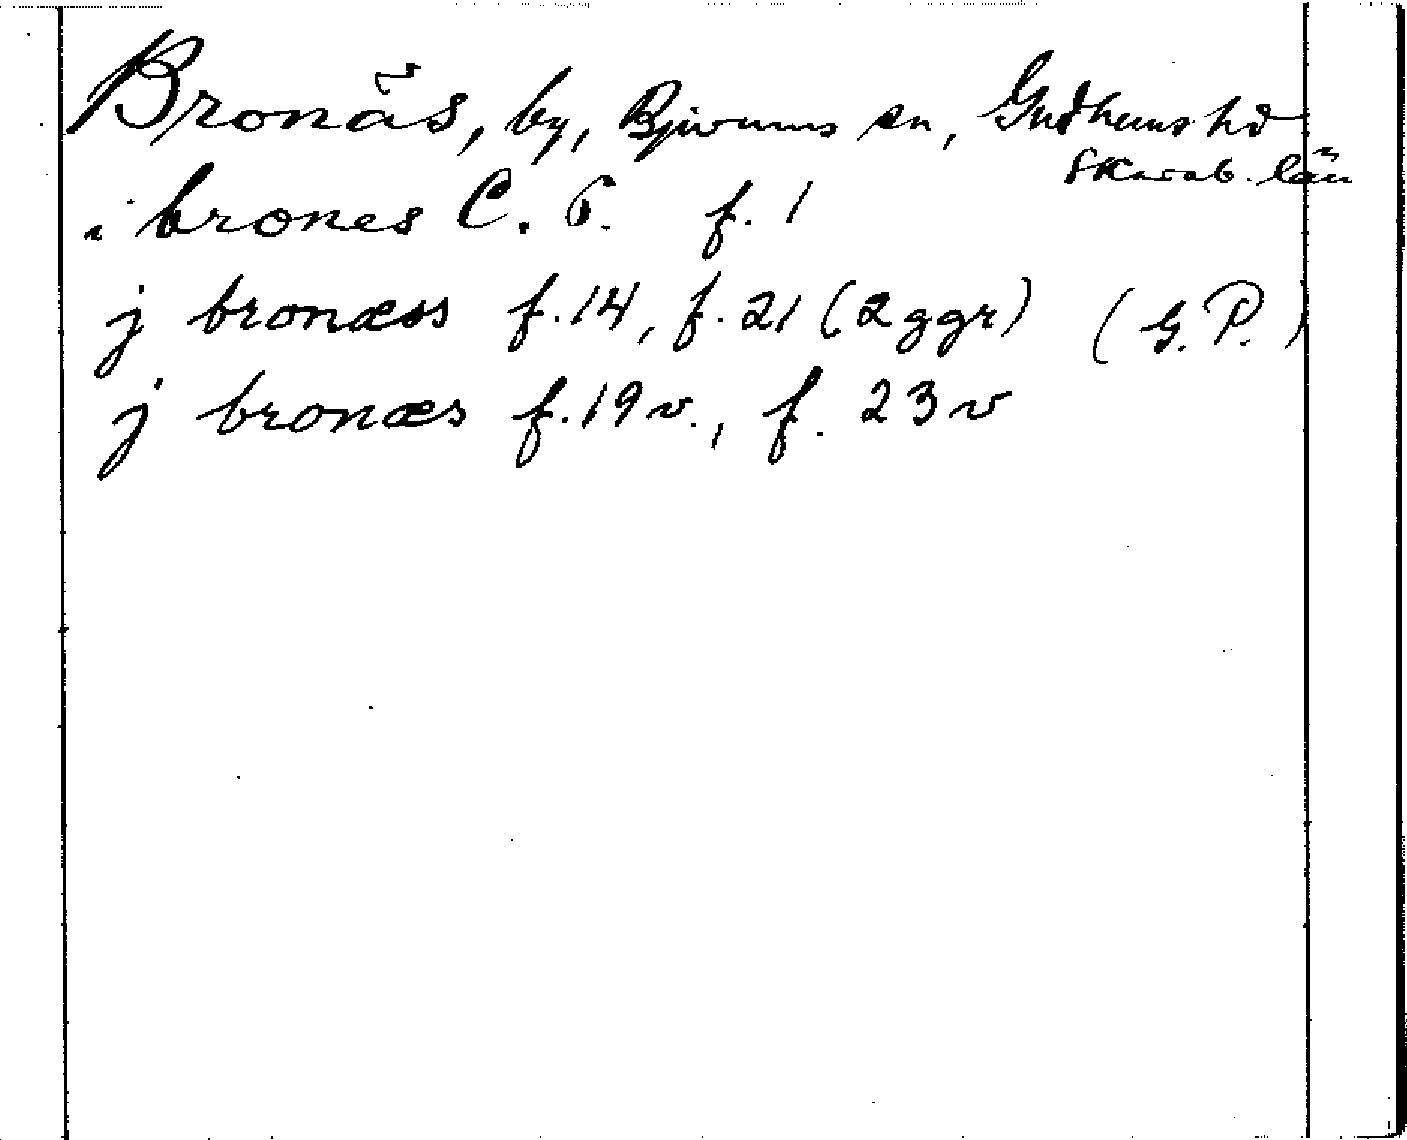 Bronäs, by, Bjurums sn, Gudhems hd
Skarab. län
i brones C. 6. f. 1
j bronæss f. 14, f. 21 (2 ggr) (G. P.)
j bronæs f. 19 v., f. 23 v